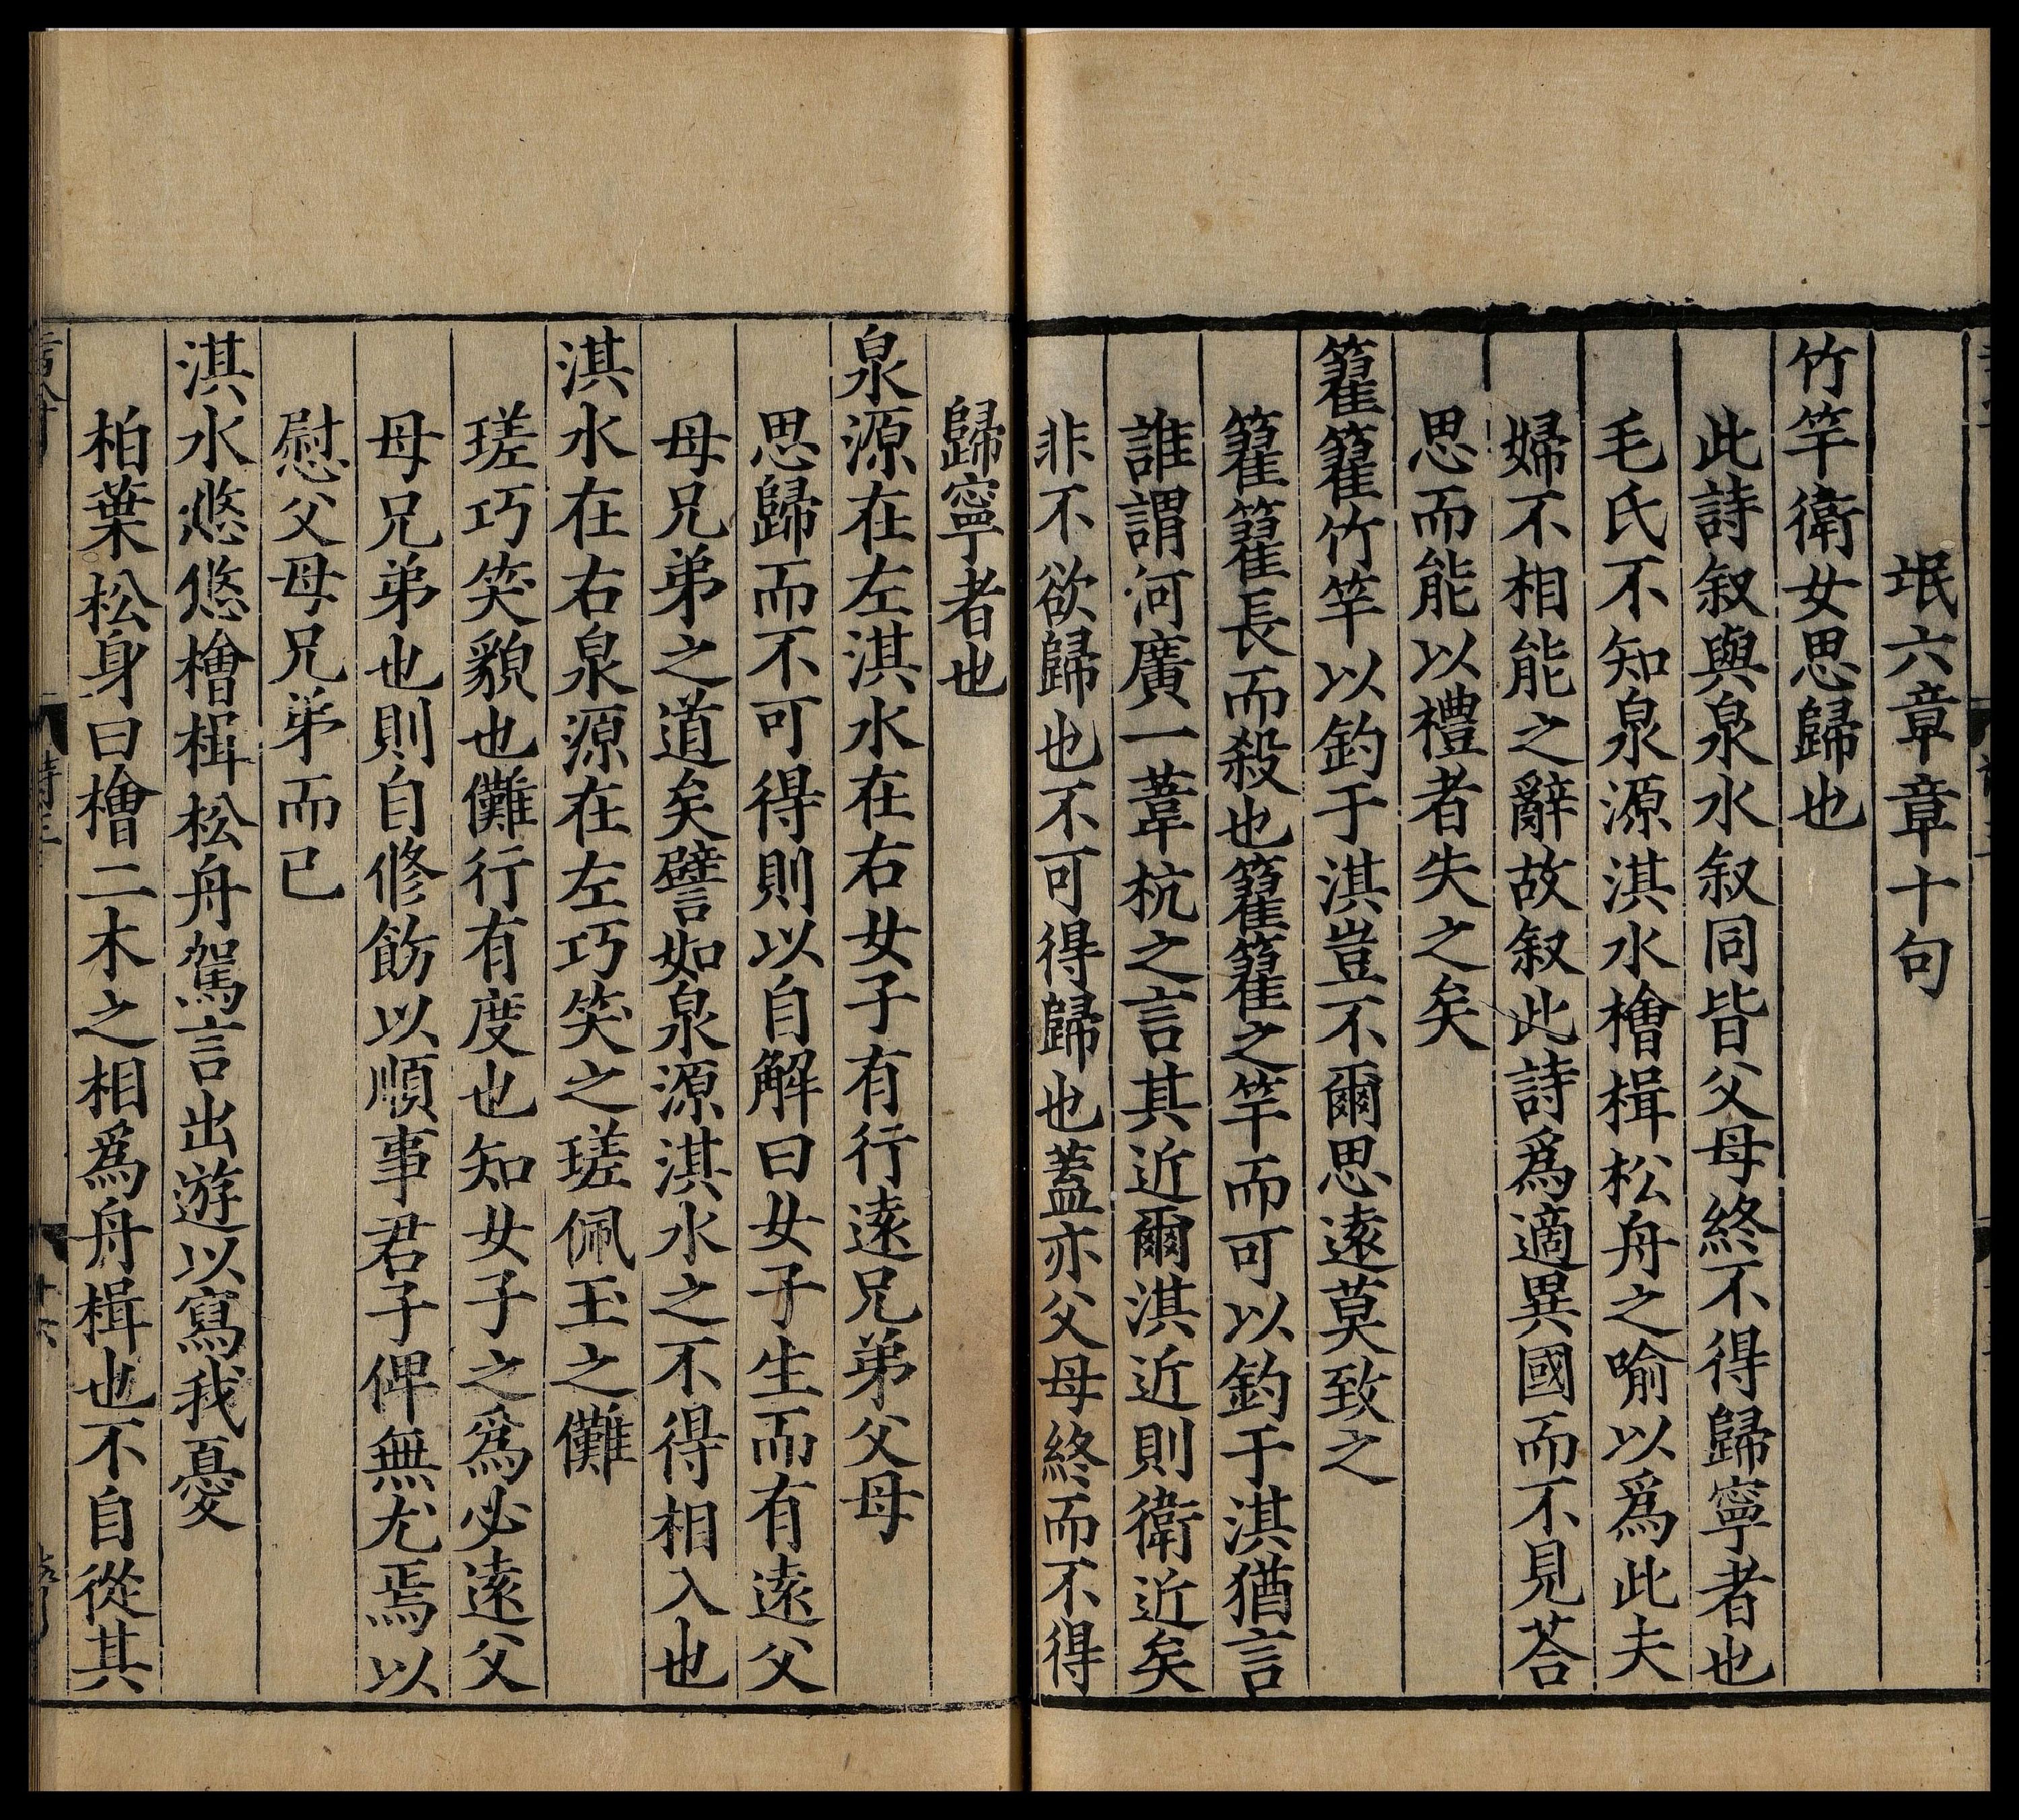 氓六章章十句
竹竿衛女思歸也
此詩叙與泉水叙同皆父母終不得歸寧者也
毛氏不知泉源淇水檜楫松舟之喻以爲此夫
婦不相能之辭故叙此詩爲適異國而不見荅
思而能以禮者失之矣
籊籊竹竿以釣于淇豈不爾思遠莫致之
籊籊長而殺也籊籊之竿而可以釣于淇猶言
誰謂河廣一葦杭之言其近爾淇近則衛近矣
非不欲歸也不可得歸也蓋亦父母終而不得
歸寧者也
泉源在左淇水在右女子有行遠兄弟父母
思歸而不可得則以自解曰女子生而有遠父
母兄弟之道矣譬如泉源淇水之不得相入也
淇水在右泉源在左巧笑之瑳佩玉之儺
瑳巧笑貌也儺行有度也知女子之爲必遠父
母兄弟也則自修飭以順事君子俾無尤焉以
慰父母兄弟而已
淇水悠悠檜楫松舟駕言出遊以寫我憂
柏葉松身曰檜二木之相爲舟楫也不自從其